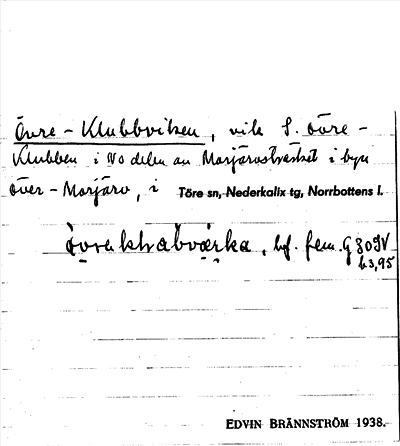 Övre-Klubbviken, vik S. Övre-
Klubben i NO delen av Morjärvsträsket i byn
Över-Morjärv, i Töre sn, Nederkalix tg, Norrbottens l.
bf. fem. G 30 IV
b 3,95
EDVIN BRÄNNSTRÖM 1938.